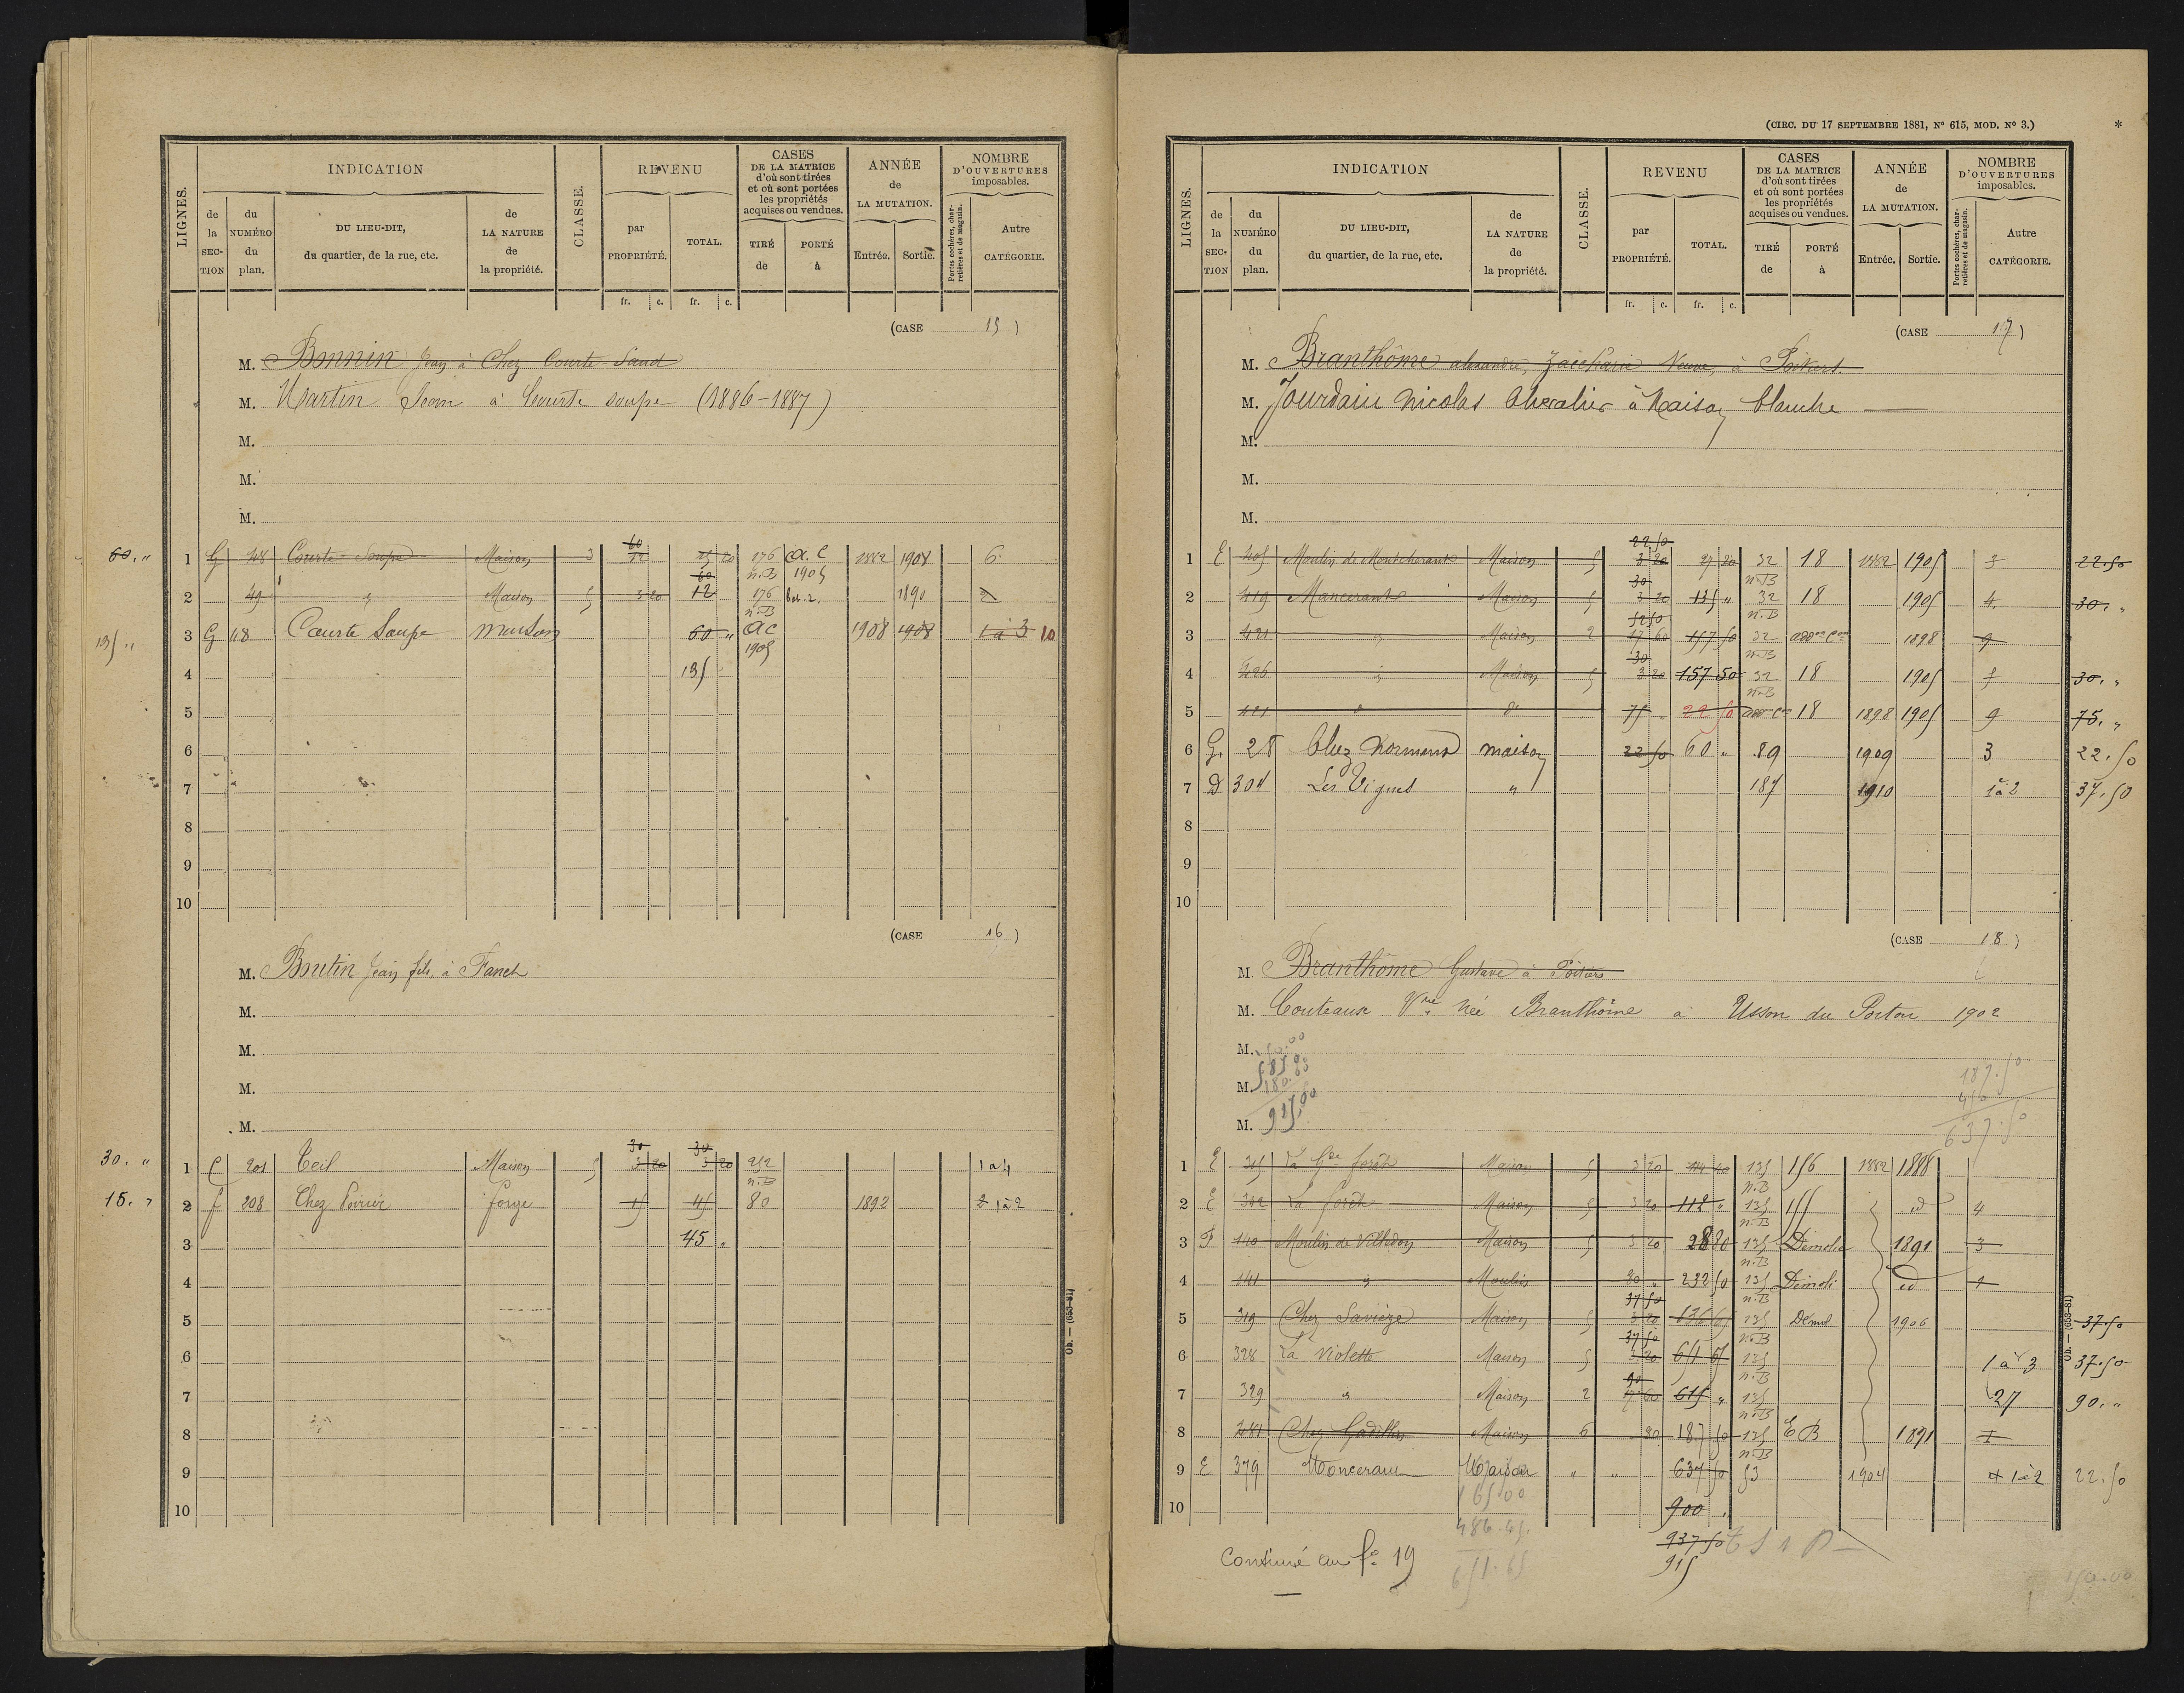 LIGNES.
INDICATION
de la SECTION
du NUMÉRO du plan.
DU LIEU-DIT, du quartier, de la rue, etc.
de LA NATURE de la propriété.
CLASSE.
REVENU
par PROPRIÉTÉ.
TOTAL.
fr. c. fr. c.
CASES DE LA MATRICE d'où sont tirées et où sont portées les propriétés acquises ou vendues.
TIRÉ de
PORTÉ à
ANNÉE de LA MUTATION.
Entrée. Sortie.
NOMBRE D'OUVERTURES imposables.
Portes cochères, charretières et de magasin.
Autre CATÉGORIE.
(CASE 15)
M. Bonnin Jean à Chez Courte
M. Martin Jean à Courte soupe (1886-1887)
M.
M.
M.
60. " 1 G 48 Courte Soupe Maison 3 60 12 15 20 176 n.B a.c 1905 1882 1908 6
2 49 " Maison 5 3 20 60 12 176 n.B 1890 2
135 " 3 G 48 Courte Soupe maison 60 " ac 1905 1908 1908 1 à 3 10
4 135
5
6
7
8
9
10
(CASE 16)
M. Boutin Jean fils, à Fanet
M.
M.
M.
M.
30. " 1 C 201 Teil Maison 5 30 3 20 30 3 20 252 n.B 1 a 4
15. " 2 f 208 Chez Poirier forge 15 45 80 1892 2 1 à 2
3 45 "
4
5
6
7
8
9
10
(CIRC. DU 17 SEPTEMBRE 1881, Nº 615, MOD. Nº 3.) *
LIGNES.
INDICATION
de la SECTION
du NUMÉRO du plan.
DU LIEU-DIT, du quartier, de la rue, etc.
de LA NATURE de la propriété.
CLASSE.
REVENU
par PROPRIÉTÉ.
TOTAL.
fr. c. fr. c.
CASES DE LA MATRICE d'où sont tirées et où sont portées les propriétés acquises ou vendues.
TIRÉ de
PORTÉ à
ANNÉE de LA MUTATION.
Entrée. Sortie.
NOMBRE D'OUVERTURES imposables.
Portes cochères, charretières et de magasin.
Autre CATÉGORIE.
(CASE 17)
M. Branthôme alexandre, Zaccharie Veuve, à
M. Jourdain Nicolas Chevalier à Maison blanche
M.
M.
M.
1 E 405 Moulin de Maison 5 22 50 3 20 27 20 32 n.B 18 1882 1905 3 22.50
2 419 Maison 5 30 3 20 135 " 32 n.B 18 1905 4 30. "
3 421 " Maison 2 52 50 17 60 157 50 32 n.B 1898 9
4 426 " Maison 5 30 3 20 157 50 32 n.B 18 1905 5 30. "
5 421 " dº 75 22 50 18 1898 1905 9 75. "
6 G. 28 Chez Normand maison 22 50 60 " 89 1909 3 22.50
7 D 304 Les Vignes " 187 1910 1 à 2 37.50
8
9
10
(CASE 18)
M. Branthôme Gustave à Poitiers
M. Couteaux Vve née Branthôme à Usson du Poitou 1902
M.
M. 180.00
M. 915,00
187.50
637.50
1 E 315 La Gde forêt Maison 5 3 20 135 n.B 156 1882 1888
2 E 342 La forêt Maison 5 3 20 112 " 135 n.B 155 id 4
3 F 140 Moulin de Villedon Maison 5 3 20 28 80 135 n.B Démolie 1891 3
4 141 " Moulin 80 " 232 50 135 n.B Démoli id 1
5 319 Chez Savièze Maison 5 37 50 3 20 135 n.B Démol 1906 37.50
6 328 La Violette Maison 5 37 50 3 20 135 n.B 1 à 3 37.50
7 329 " Maison 2 90 17 60 615 " 135 n.B 27 90. "
8 281 Maison 6 80 187 50 135 n.B E B 1891 1
9 E 379 Moncerau Maison " " 637 50 53 1904 4 1 à 2 22.50
10 165.00 900 "
486.65 937.50
Continué au fº 19 651.65 915
150.00